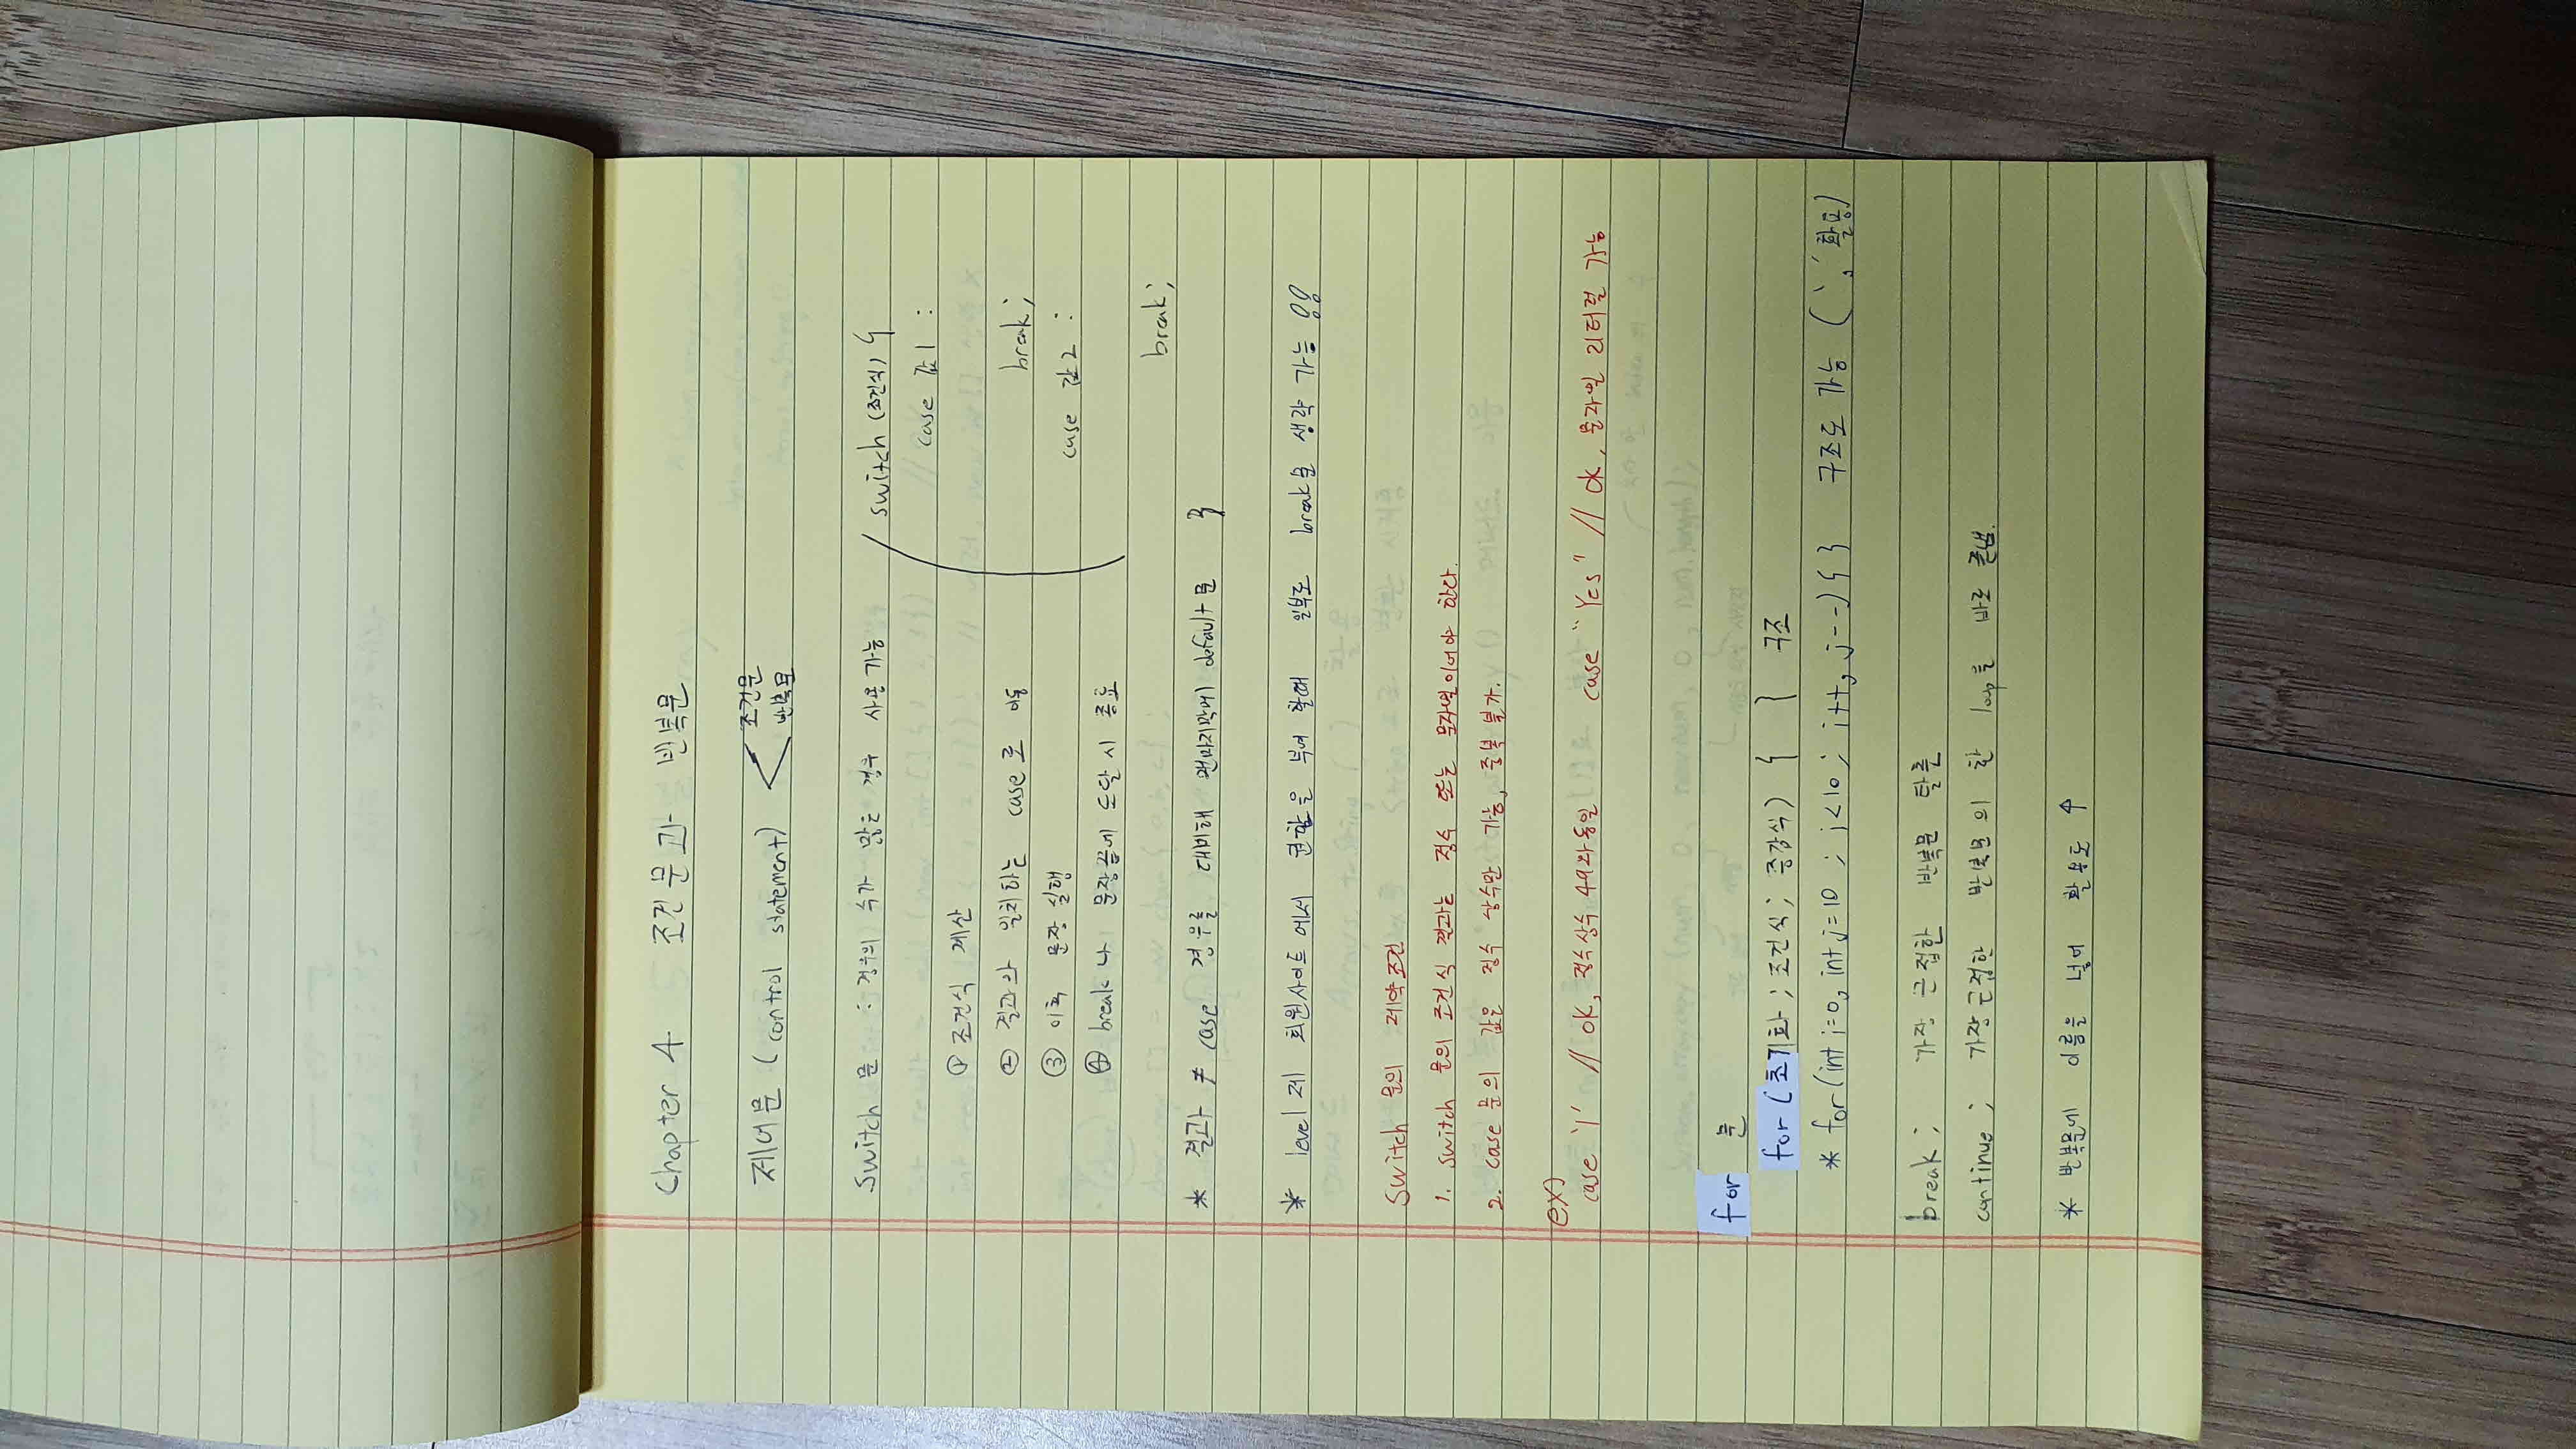 Chapter 4 조건문과 반복문
제어문 (control statement) < 조건문
반복문
Switch 문 : 경우의 수가 많은 경우 사용 가능
① 조건식 계산
② 결과와 일치하는 case로 이동
③ 이후 문장 실행
④ break 나 문장끝에 도달 시 종료
switch (조건식) {
case 값1 :
break;
case 값2 :
break;
}
* 결과 ≠ case 경우를 대비해 맨마지막에 default 문
* level 제 회원사이트에서 권한을 부여 할때 일부로 break문 생략 가능 !!
Switch 문의 제약조건
1. switch 문의 조건식 결과는 정수 또는 문자열이어야 한다.
2. case 문의 값은 정수 상수만 가능, 중복 불가.
ex)
case '1' // ok, 정수상수 49와 동일 case "Yes" // ok, 문자열 리터럴 가능
for 문
for (초기화 ; 조건식 ; 증감식) { } 구조
* for (int i=0, int j=10 ; i<10 ; i++, j--) { } 구조도 가능 (',' 활용)
break ; 가장 근접한 반복문 탈출
continue ; 가장 근접한 반복문의 한 loop를 바로 끝냄.
* 반복문에 이름을 넣어 활용도 ↑